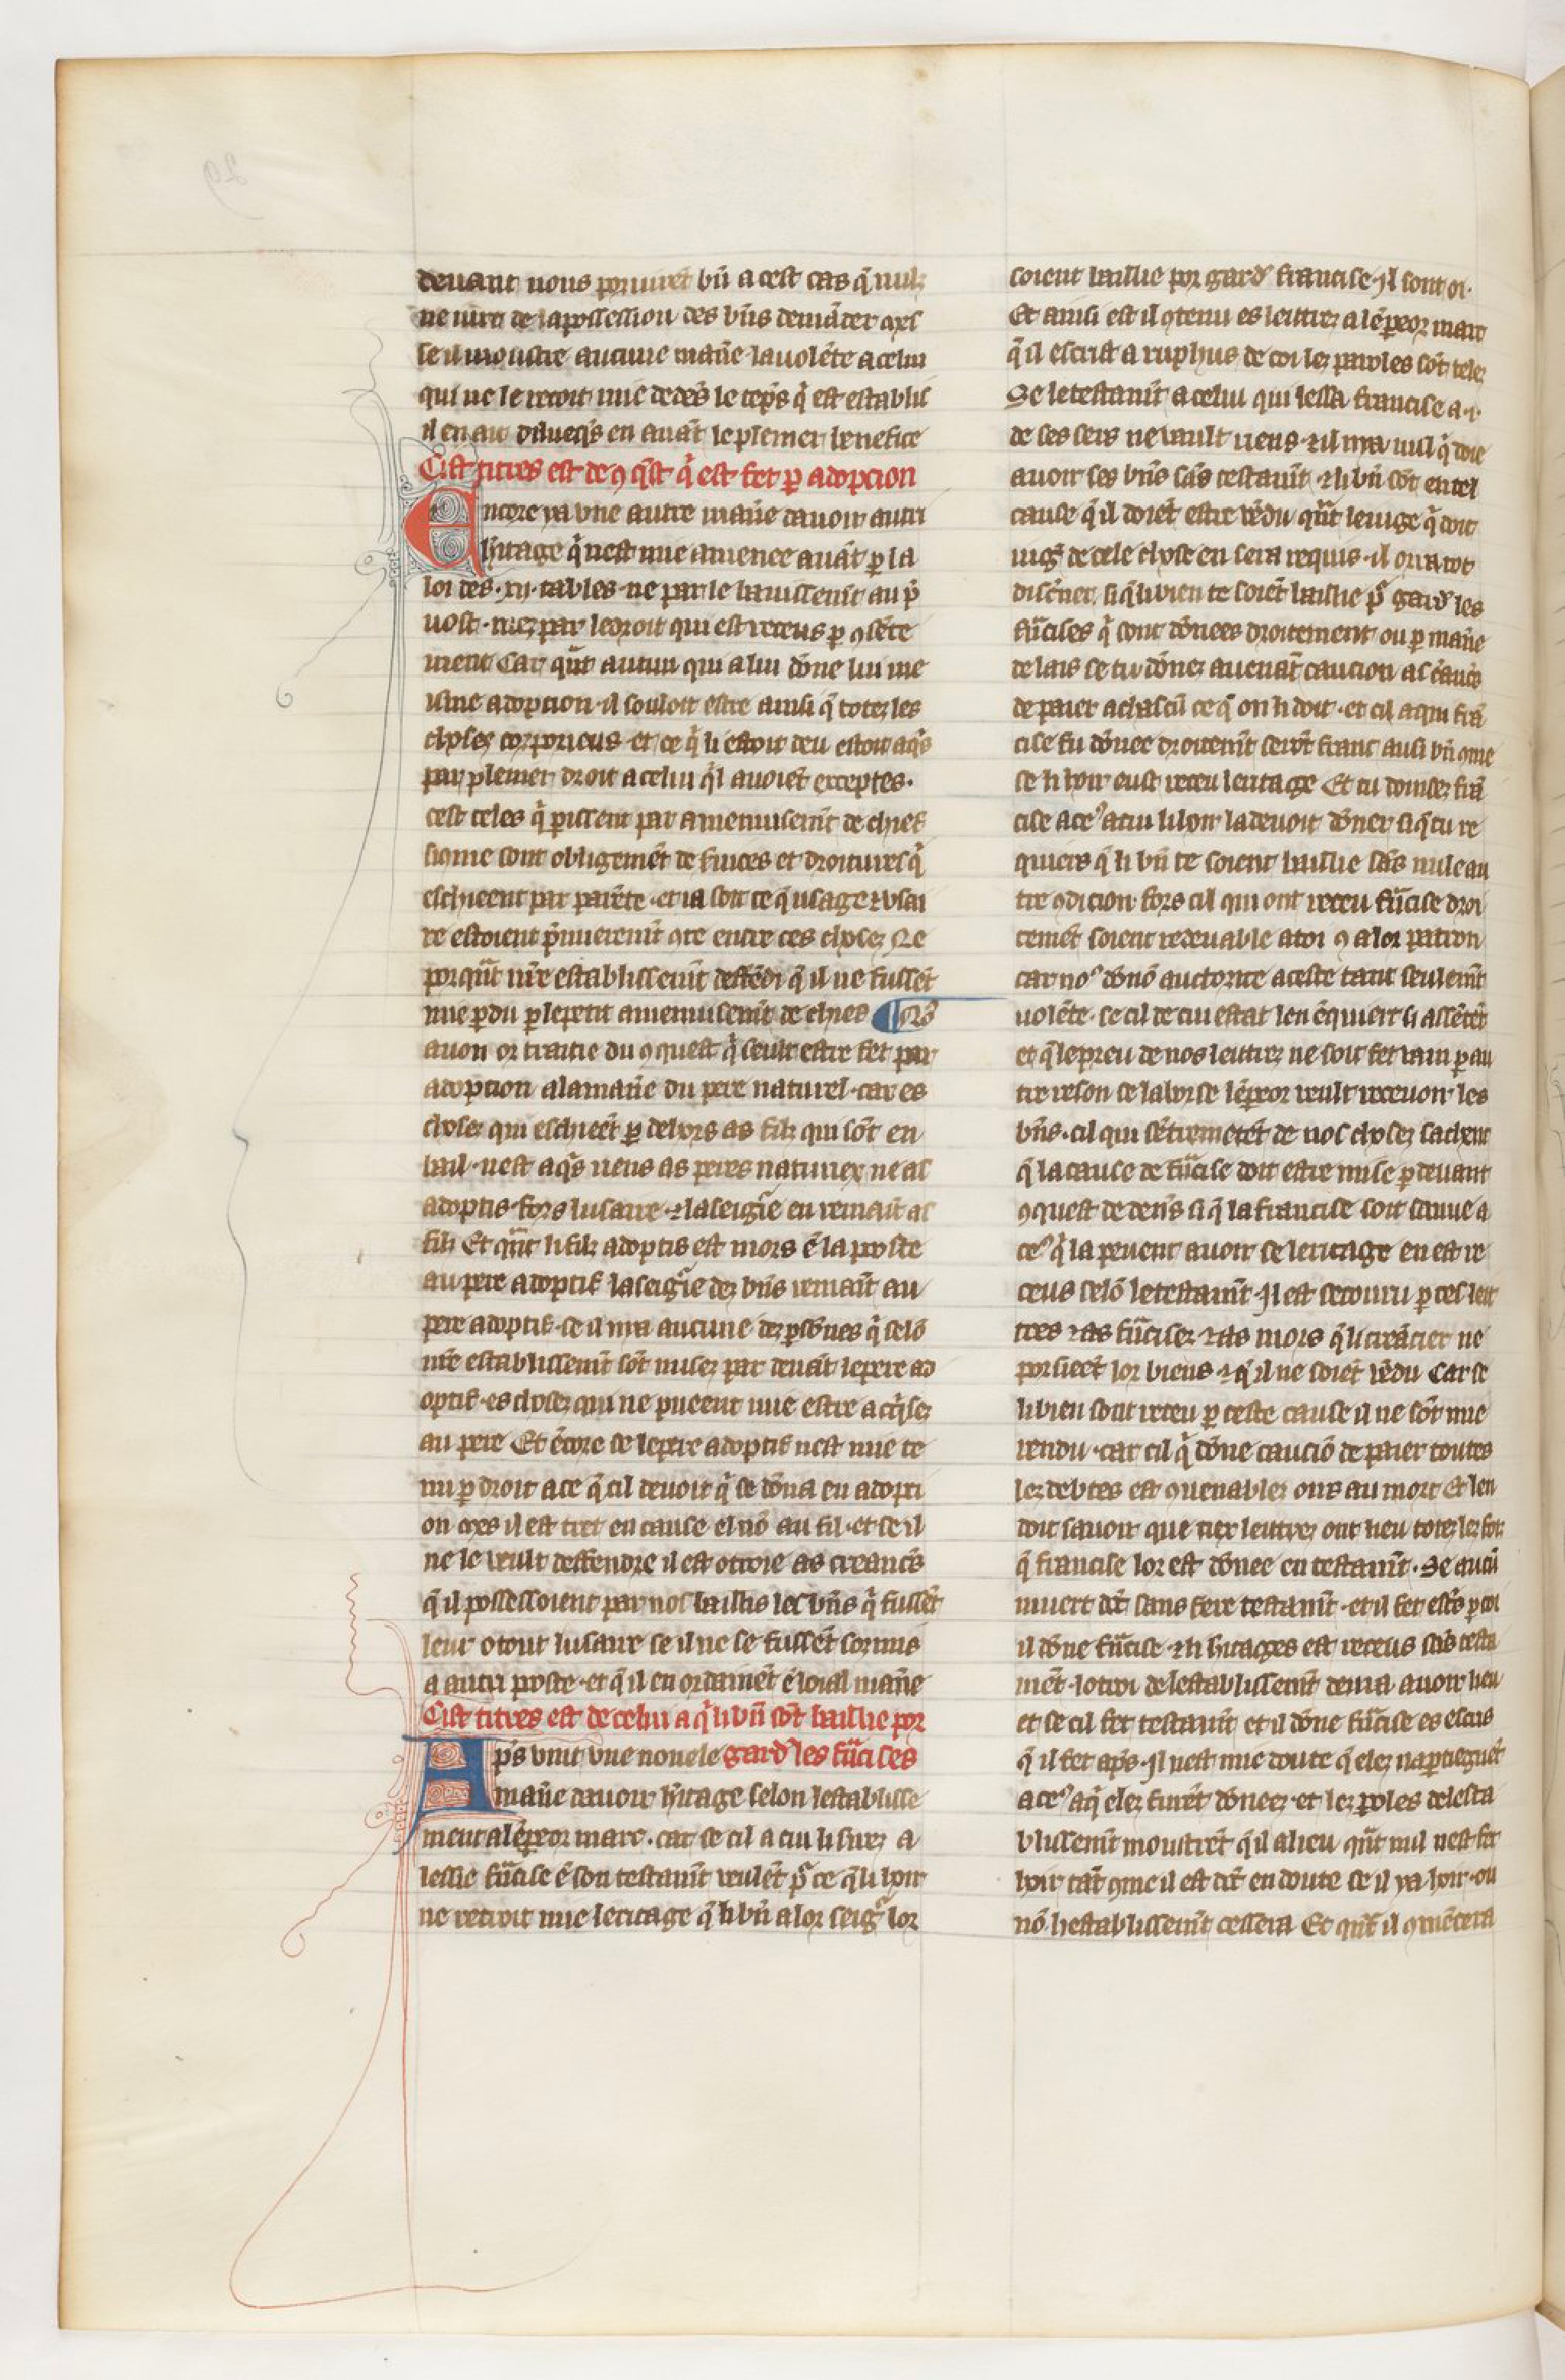 deuant nous poururet bn̄ a cest cas q̄ nulz
ne iure de la possession des bn̄s demāder apͣs
se il moustre aucune man̄e la uolēte a celui
qui ne le recoit mie dedēs le tēps q̄ est establi
il en au en auāt le plenier benefice
Cist titres est de ꝯqͣst q̄ est fet ꝑ adopcion
Encore ya vne autre man̄e dauoir autri
h̄itage q̄ nest mie amenee auāt ꝑ la
loi des .xij. tables ne par le baniſſemt̄ au p̄
uost. mez par le droit qui est receus ꝑ ꝯsēte
ment Car qn̄t aucun qui a lui dōne lui me
isme adopcion il souloit estre ainsi q̄ totez les
choses corporieus et ce q̄ li estoit deu estoit aqͥs
par plenier droit a celui qͥl auoiēt exceptes.
cest celes q̄ ꝑissent par amenuisemt̄ de chief
sicome sont obligemēt de seruices et droitures q̄
eschieent par parēte. et ia soit ce q̄ usage ⁊ vsai
re estoient p̄mieremt̄ ꝯte entre ces choses Ne
porqͣt nr̄e establissemt̄ deffēdi q̄ il ne fussēt
mie ꝑdu ꝑ le petit amenuisemt̄ de chief ¶ Nͦ
auon or traitie du ꝯquest q̄ seult estre fet par
adopcion a la man̄e du pere naturel. car es
choses qui eschieēt ꝑ dehors as filz qui sōt en
bail. nest aqͥs riens as peres naturiex ne as
adoptis. fors lusaire. ⁊ la seigͥe en remait as
filz Et qn̄t li filz adoptis est mors ē la poste
au pere adoptif la seigͥe dez bn̄s remait au
pere adoptif. se il nya aucune dez ꝑsōnes q̄ selō
nr̄e establissemt̄ sōt misez par deuāt le pere ad
optif. es choses qui ne pueent mie estre acqͥsez
au pere Et ēcore se le pere adoptif nest mie te
nu ꝑ droit a ce q̄ cil deuoit q̄ se dōna en adopci
on apͣs il est tret en cause el nō au fil. et se il
ne le veult deffendre il est otroie as creancͥs
q̄ il possessoient par nos baillis les bn̄s q̄ fussēt
leur o tout lusaire se il ne se fussēt sozmis
a autri poste. et q̄ il en ordainēt ē loial man̄e
Cist titres est de celui a q̄ li bn̄ sōt baillie por
gardͬ les frāc̄ises
Apͣs vint vne nouele
man̄e dauoir h̄itage selon lestablisse
ment a lēpeor marc. car se cil a cui li serz a
lessie frācise ē son testamt̄ veulēt pͬ ce q̄ li hoir
ne recoit mie leritage q̄ li bn̄ a lor seigͬ lor
soient baillie por gardͬ francise. Il sont oi.
Et ainsi est il ꝯtenu es lettrez a lēpeor marc
q̄ il escrist a ruphus de coi lez paroles sōt telez
Se le testamt̄ a celui qui lessa francise a .i.
de ses sers ne vault riens. ⁊ il nya nul q̄ doie
auoir ses bn̄s sās testamt̄. ⁊ li bn̄ sōt en tel
cause q̄ il doiēt estre vēdu qn̄t le iuge q̄ doit
iugͬ de cele chose en sera requis. il orra tot
disc̄ner. si q̄ li bien te soiēt baillie pͬ gardͬ les
frācises q̄ sont dōnees droitement ou ꝑ man̄e
de lais se tu dōnez auenāt caucion as c̄ancͥs
de paier a chascū ce q̄ on li doit. et cil a qui frā
cise fu dōnee droitemt̄ serōt franc ausi bn̄ ꝯme
se li hoir eust receu leritage Et tu donrez frā
cise a ceͧs a cui li hoir la deuoit dōner si q̄ tu re
quiers q̄ li bn̄ te soient baillie sās nule au
tre ꝯdicion fors cil qui ont receu frācise droi
temēt soient redeuable a toi ꝯ a lor patron
car noͧs dōnō auctorite a ceste tant seulemt̄
uolēte. se cil de cui estat len ēquiert si assētēt
et q̄ le preu de nos lettrez ne soit fet vain ꝑ au
tre reson se la borse lēpeor veult receuoir les
bn̄s. cil qui sētremetēt de nos choses sachent
q̄ la cause de frācise doit estre mise ꝑ deuant
ꝯquest de denrͬs si q̄ la francise soit sauue a
ceͧs q̄ la peuent auoir se leritage en est re
ceus selō le testamt̄. Il est secouru ꝑ ces lett
tres ⁊ as frācisez ⁊ as mors q̄ li creācier ne
porsieēt lor biens ⁊ q̄ il ne soiēt vēdu Car se
li bien sont receu ꝑ ceste cause il ne sōt mie
vendu. car cil q̄ dōne cauciō de paier toutes
lez debtes est ꝯuenablez ons au mort Et len
doit sauoir que ciex lettrez ont lieu totez lez foiz
q̄ francise lor est dōnee en testamt̄. Se aucū
muert dōt sans fere testamt̄. et il fet escͬs ꝑ coi
il dōne frācise ⁊ li h̄itages est receus sās testa
mēt. lotroi de lestablissemt̄ deura auoir lieu
et se cil fet testamt̄ et il dōne frācise es escris
q̄ il fet apͣs. Il nest mie doute q̄ elez napartiegnēt
a ceͧs a q̄ elez furēt dōneez. et lez ꝑoles de lesta
blissemt̄ moustrēt q̄ il a lieu qn̄t nul nest fet
hoir tāt ꝯme il est dōt en doute se il ya hoir. ou
nō. li establissemt̄ cessera Et qn̄t il ꝯmēcera